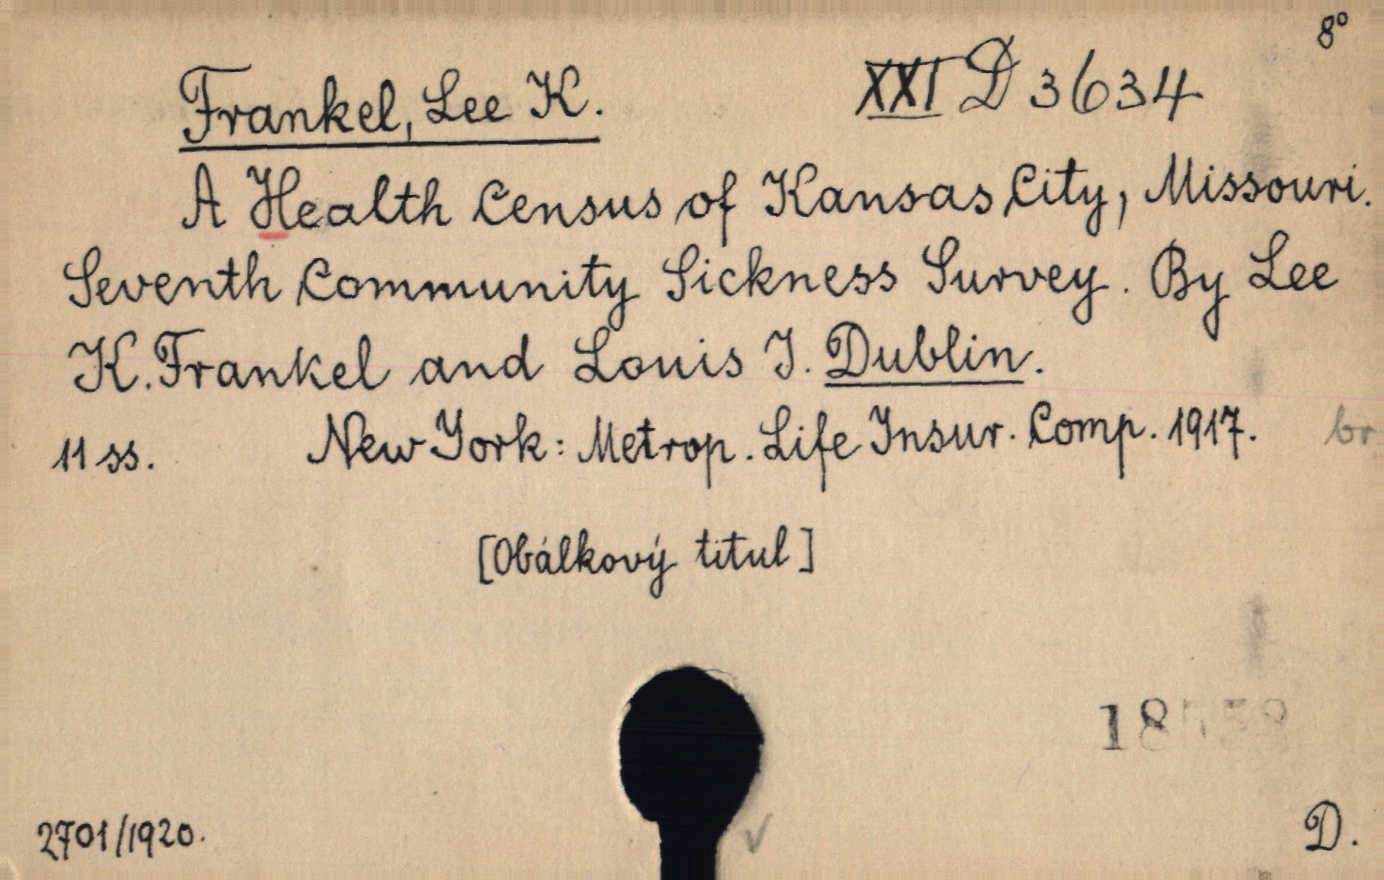 8°
Frankel, Lee K. XXI D 3634
A Health Census of Kansas City, Missouri.
Seventh Community Sickness Survey. By Lee
K. Frankel and Louis I. Dublin.
11 ss. New York: Metrop. Life Insur. Comp. 1917. br
[Obálkový titul]
2701/1920. D.